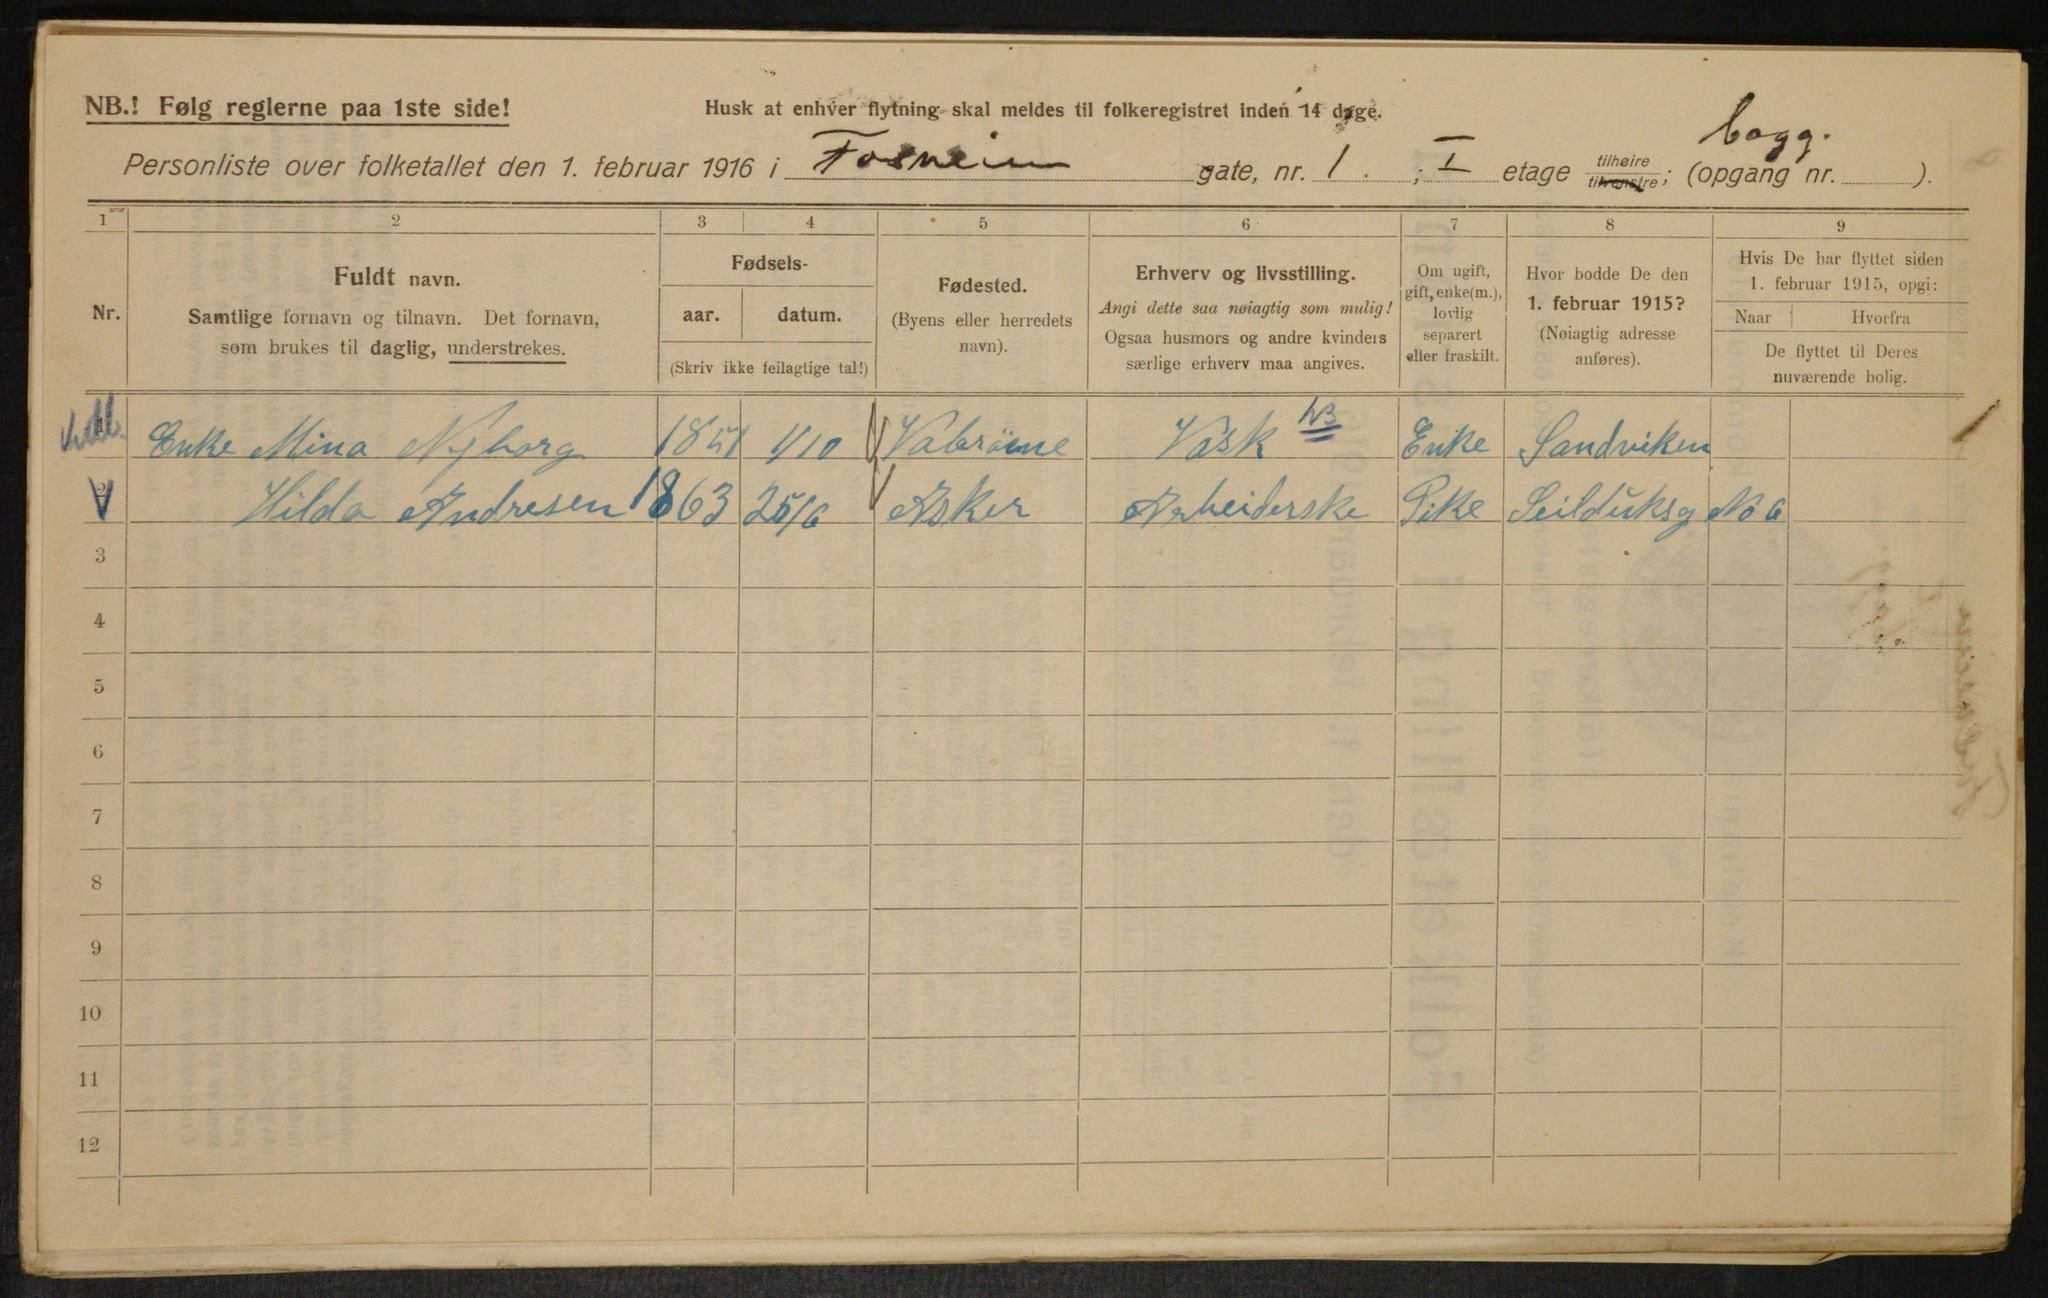 NB.! Følg reglerne paa 1ste side!
Husk at enhver flytning skal meldes til folkeregistret inden 14 dage.
bagg.
Personliste over folketallet den 1. februar 1916 i Fosheim gate, nr. 1. ; I etage tilhøire tilvenstre; (opgang nr. ).
1 2 3 4 5 6 7 8 9
Nr.
Fuldt navn.
Samtlige fornavn og tilnavn. Det fornavn,
som brukes til daglig, understrekes.
Fødsels-
aar. datum.
(Skriv ikke feilagtige tal!)
Fødested.
(Byens eller herredets
navn).
Erhverv og livsstilling.
Angi dette saa nøiagtig som mulig!
Ogsaa husmors og andre kvinders
særlige erhverv maa angives.
Om ugift,
gift, enke(m.),
lovlig
separert
eller fraskilt.
Hvor bodde De den
1. februar 1915?
(Nøiagtig adresse
anføres).
Hvis De har flyttet siden
1. februar 1915, opgi:
Naar Hvorfra
De flyttet til Deres
nuværende bolig.
1 Enke Mina Nyborg 1851 1/10 Vask Enke Sandviken
2 Hilda Andresen 1863 25/6 Asker Arbeiderske Pike Seilduksg No 6
3
4
5
6
7
8
9
10
11
12